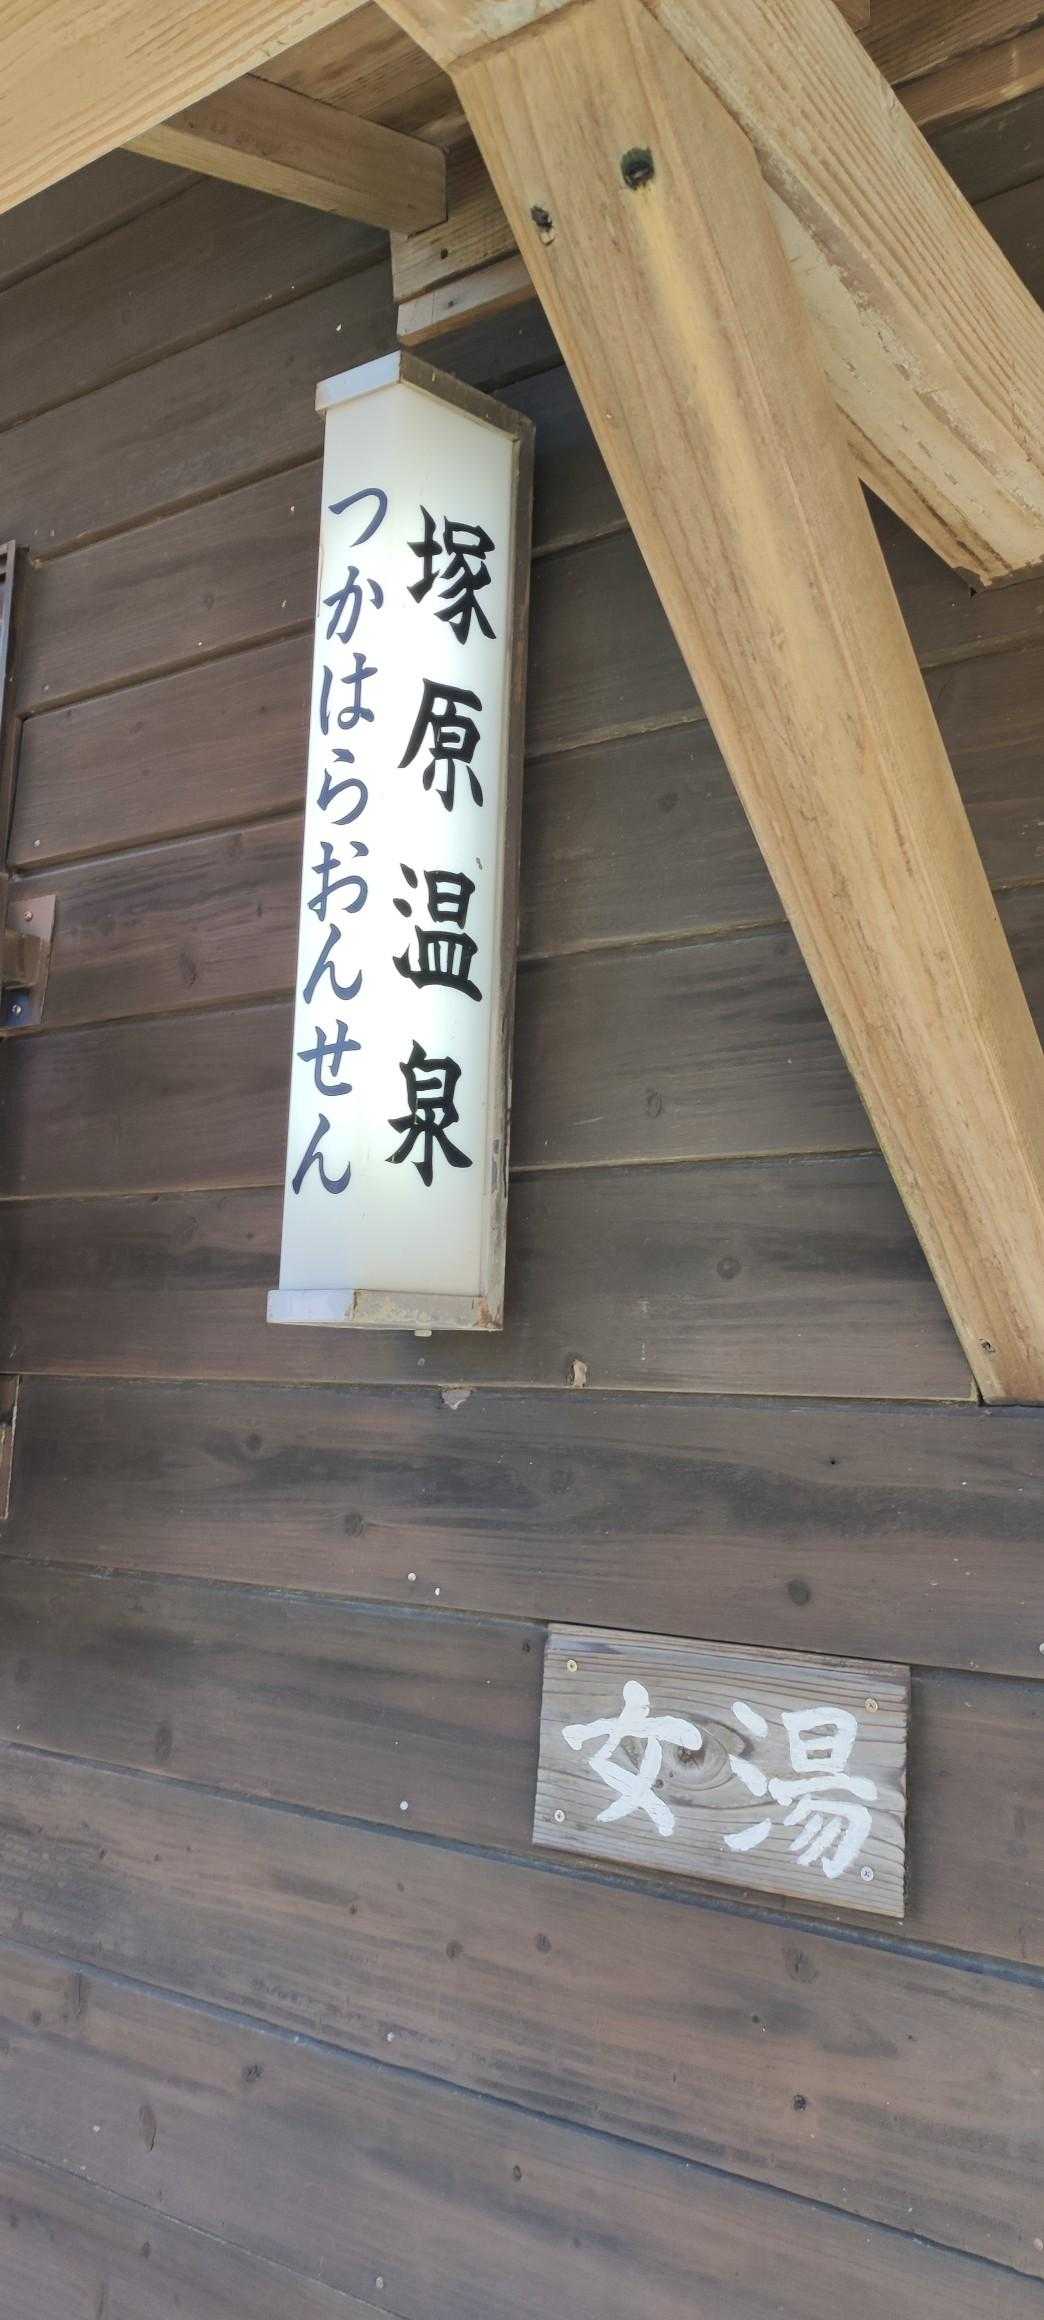 塚原温泉
つかはらおんせん
女湯